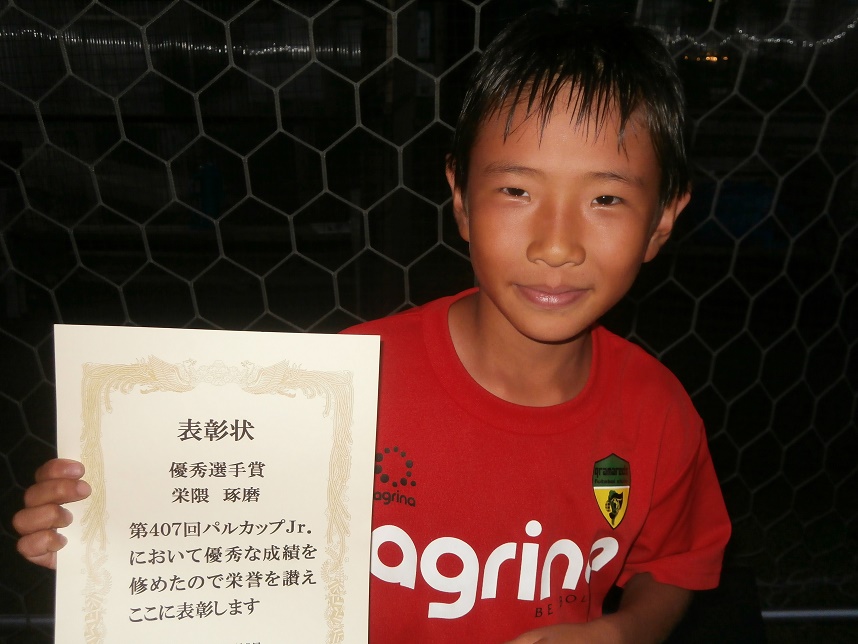 表彰状
優秀選手賞
栄隈 琢磨
第407回パルカップJr.
において優秀な成績を
修めたので栄誉を讃え
ここに表彰します
agrina
agrina